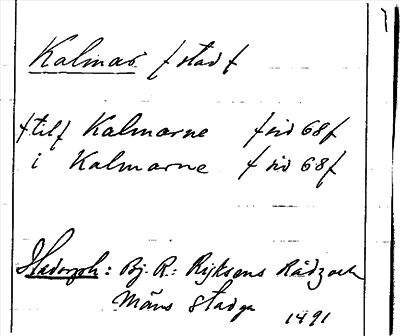 Kalmar /stad/
/till/ Kalmarne /sid 68/
i Kalmarne /sid 68/
Hadorph: Bj. R: Rijksens Rådz och
Mäns Stadga 1491